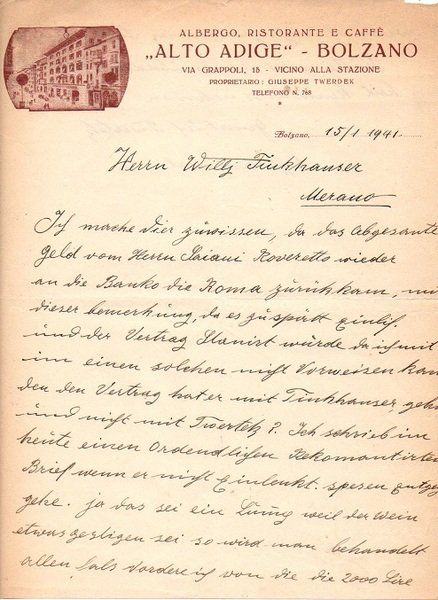 ALBERGO, RISTORANTE E CAFFÈ
„ALTO ADIGE“ - BOLZANO
VIA GRAPPOLI, 15 - VICINO ALLA STAZIONE
PROPRIETARIO: GIUSEPPE TWERDEK
TELEFONO N. 768
Bolzano, 15/1 1941.
Herrn Willj Tinkhauser
Merano
Ich mache dier zuwissen, da das abgesante
Geld vom Herrn Roveretto wieder
an die Banko die Roma zurükkam, mit
dieser bemerkung, da es zu spätt
und der Vertrag würde da ich mit
im einen solchen nicht Vorweisen kan
den den Vertrag hat er mit Tinkhauser,
und nicht mit Twertek? Ich schrieb im
heute einen Ordendlichen Rekomantirten
Brief wenn er nicht Einlenkt. spesen
gehe. ja das sei ein weil der Wein
etwas gestigen sei so wird man behandelt
allen fals vordere ich von die die 2000 Lire